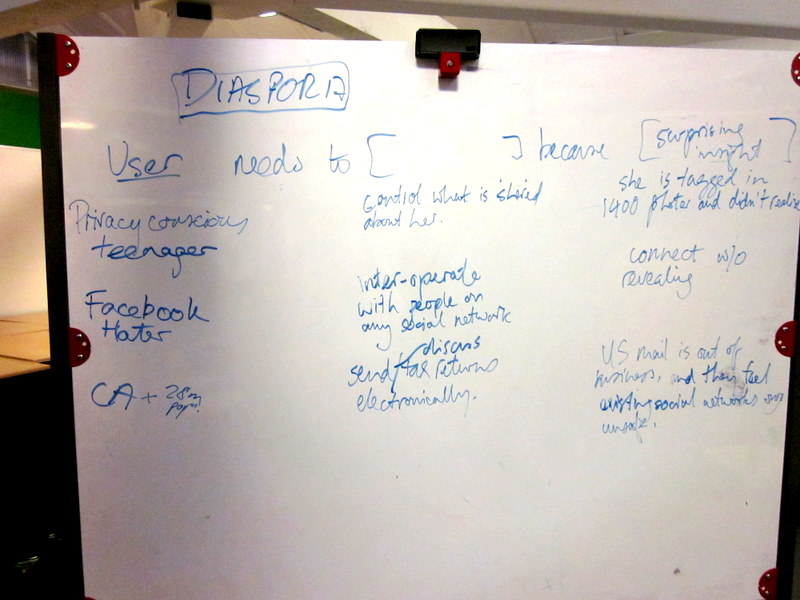 DIASPORA
User needs to [ ] because [surprising insight]
Privacy conscious
teenager
control what is shared
about her.
she is tagged in
1400 photos and didn't realise
Facebook
Hater
inter-operate
with people on
any social network
connect w/o
revealing
CA + 28m
pop!
discuss
send/tax returns
electronically.
US mail is out of
business, and they feel
existing social networks are
unsafe.